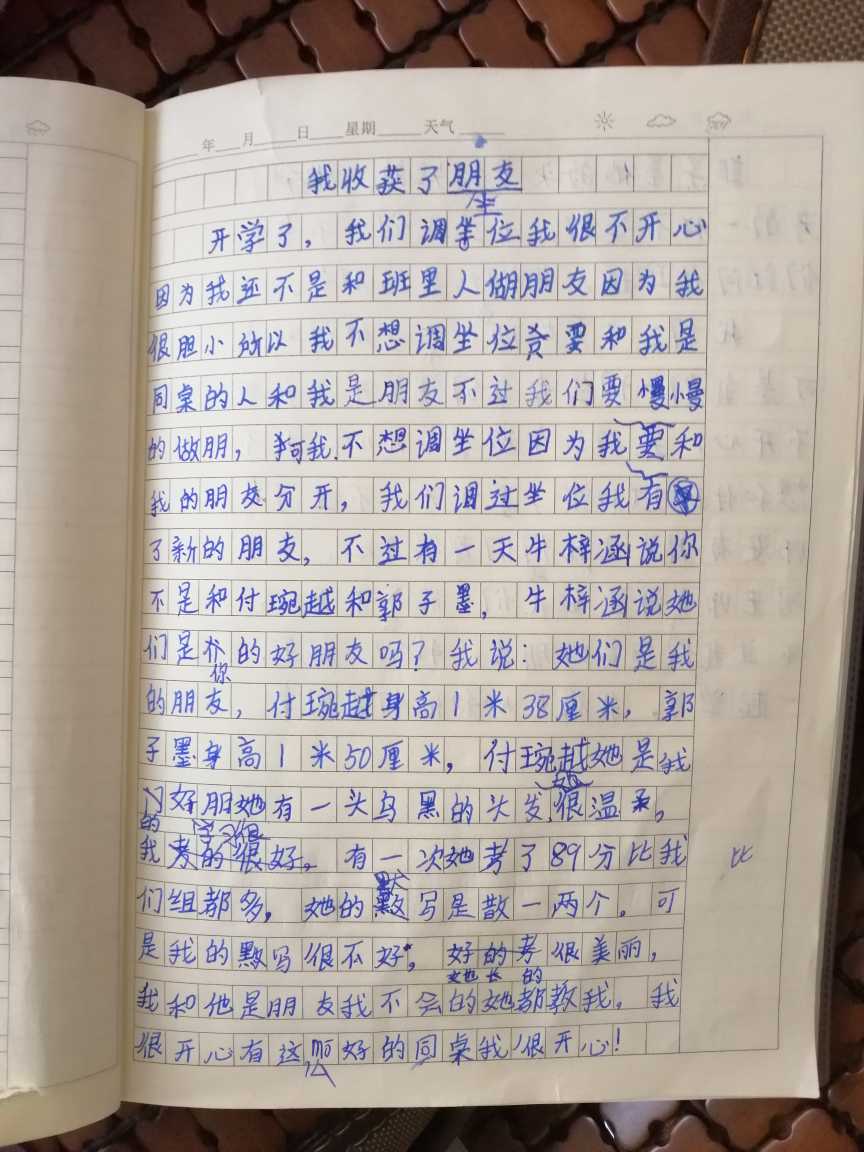 年 月 日 星期 天气
我收获了朋友
坐
开学了，我们调位我很不开心
因为我还不是和班里人做朋友因为我
很胆小所以我不想调坐位 要和我是
同桌的人和我是朋友不过我们要慢慢
的做朋，我不想调坐位因为我要和
我的朋友分开，我们调过坐位我有
了新的朋友，不过有一天牛梓涵说你
不是和付琬越和郭子墨，牛梓涵说她
们是的好朋友吗？我说：她们是我
你
的朋友，付琬越身高1米38厘米，郭
子墨身高1米50厘米，付琬越她是我
好朋她有一头乌黑的头发，很温柔，
她
的 学习很
我考的很好。有一次她考了89分比我
比
默
们组都多，她的写是散一两个。可
是我的写很不好，好的考很美丽，
她长的
我和他是朋友我不会的她都教我。我
很开心有这好的同桌我很开心！
么